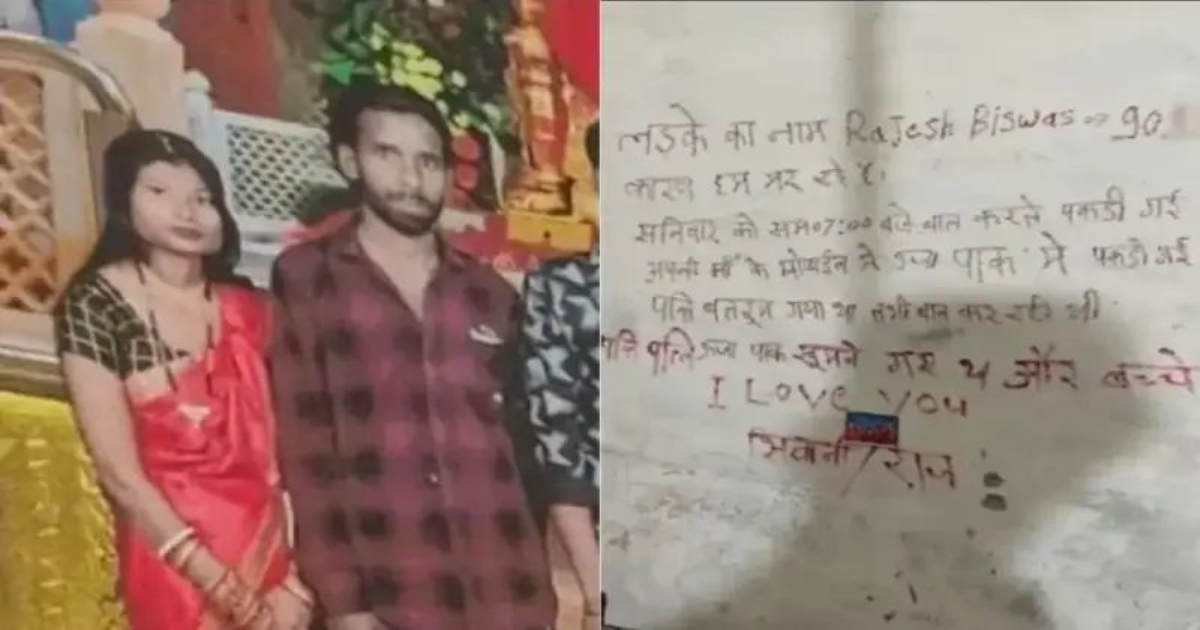 लड़के का नाम Rajesh Biswas → 90
कारण हम मर रहे है।
सनिवार को समय 07:00 बजे बात करते पकडी गई
अपनी माँ के मोबाईल से पाक में पकडी गई
पति गया था तभी बात कर रही थी
पाक घूमने गए थे और बच्चे
I Love You
शिवानी/राज